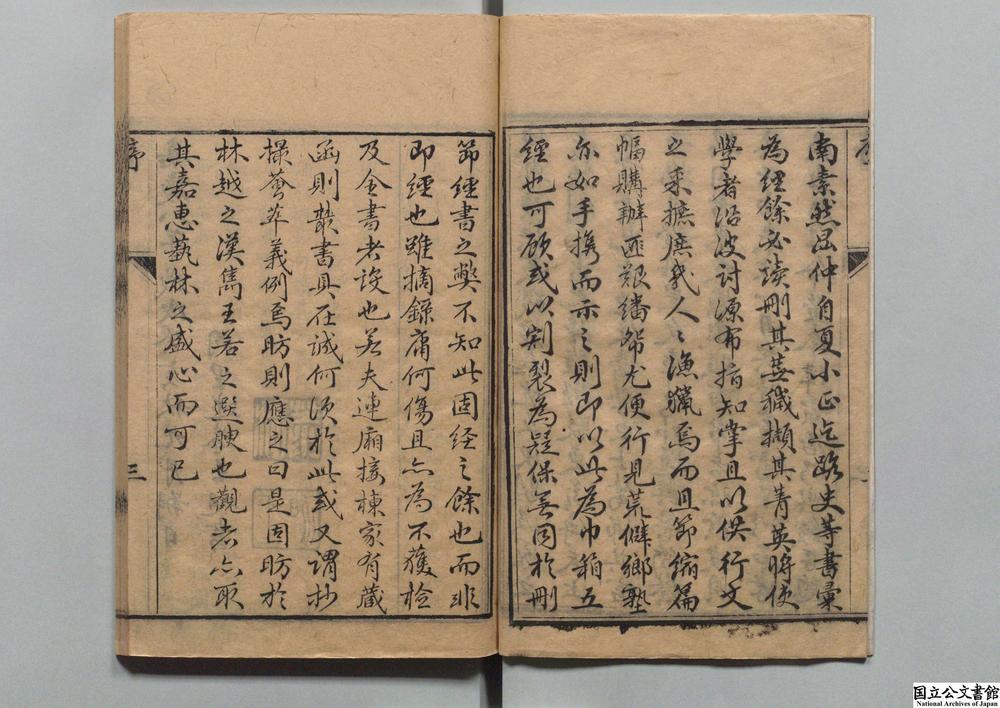 南素然咼仲自夏小正迄路史等書彙
為經餘必讀刪其蕪穢擷其菁英將使
學者沿波討源布指知掌且以供行文
之采摭庶幾人〻漁獵焉而且節縮篇
幅購辦匪艱繙帋尤便行見荒僻鄉塾
亦如手携而示之則即以此為巾箱五
經也可顧或以割裂為疑保無同於刪
節經書之獘不知此固經之餘也而非
即經也雖摘錄庸何傷且亦為不獲檢
及全書者設也若夫連廂接棟家有藏
函則叢書具在誠何須於此或又謂抄
撮薈萃義例焉昉則應之曰是固昉於
林越之漢雋王若之選腴也觀者亦取
其嘉惠藝林之盛心而可已
序
三
国立公文書館
National Archives of Japan